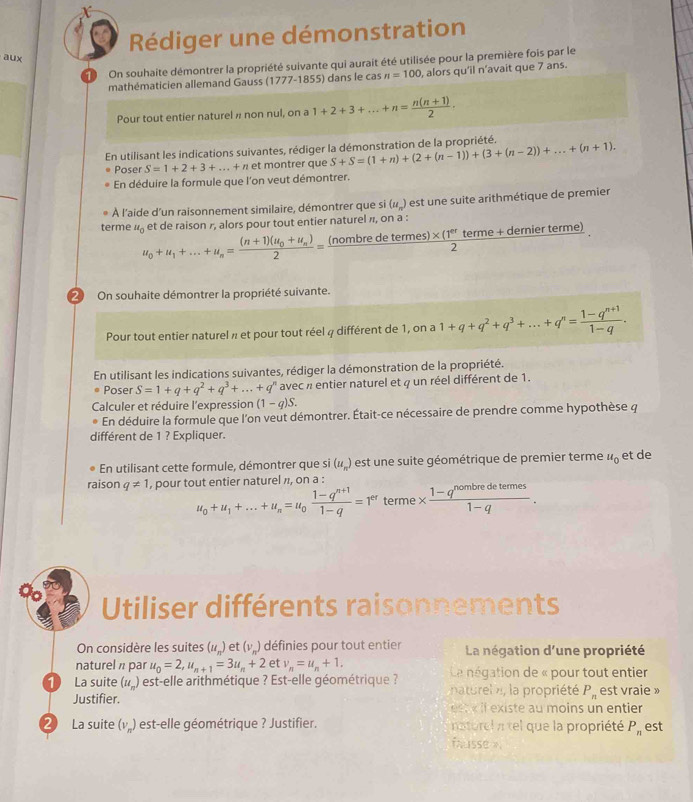 aux
Rédiger une démonstration
1 On souhaite démontrer la propriété suivante qui aurait été utilisée pour la première fois par le
mathématicien allemand Gauss (1777-1855) dans le cas n = 100, alors qu'il n'avait que 7 ans.
Pour tout entier naturel n non nul, on a 1 + 2 + 3 + … + n = n(n + 1)/2.
En utilisant les indications suivantes, rédiger la démonstration de la propriété.
• Poser S = 1 + 2 + 3 + … + n et montrer que S + S = (1 + n) + (2 + (n − 1)) + (3 + (n − 2)) + … + (n + 1).
• En déduire la formule que l'on veut démontrer.
• À l'aide d'un raisonnement similaire, démontrer que si (uₙ) est une suite arithmétique de premier
terme u₀ et de raison r, alors pour tout entier naturel n, on a :
u₀ + u₁ + … + uₙ = (n + 1)(u₀ + uₙ)/2 = (nombre de termes) × (1ᵉʳ terme + dernier terme)/2.
2 On souhaite démontrer la propriété suivante.
Pour tout entier naturel n et pour tout réel q différent de 1, on a 1 + q + q² + q³ + … + qⁿ = (1 − qⁿ⁺¹)/(1 − q).
En utilisant les indications suivantes, rédiger la démonstration de la propriété.
• Poser S = 1 + q + q² + q³ + … + qⁿ avec n entier naturel et q un réel différent de 1.
Calculer et réduire l'expression (1 − q)S.
• En déduire la formule que l'on veut démontrer. Était-ce nécessaire de prendre comme hypothèse q
différent de 1 ? Expliquer.
• En utilisant cette formule, démontrer que si (uₙ) est une suite géométrique de premier terme u₀ et de
raison q ≠ 1, pour tout entier naturel n, on a :
u₀ + u₁ + … + uₙ = u₀ (1 − qⁿ⁺¹)/(1 − q) = 1ᵉʳ terme × (1 − q^nombre de termes)/(1 − q).
Utiliser différents raisonnements
On considère les suites (uₙ) et (vₙ) définies pour tout entier
naturel n par u₀ = 2, uₙ₊₁ = 3uₙ + 2 et vₙ = uₙ + 1.
1 La suite (uₙ) est-elle arithmétique ? Est-elle géométrique ?
Justifier.
2 La suite (vₙ) est-elle géométrique ? Justifier.
La négation d'une propriété
La négation de « pour tout entier
naturel n, la propriété Pₙ est vraie »
est « il existe au moins un entier
naturel n tel que la propriété Pₙ est
fausse ».